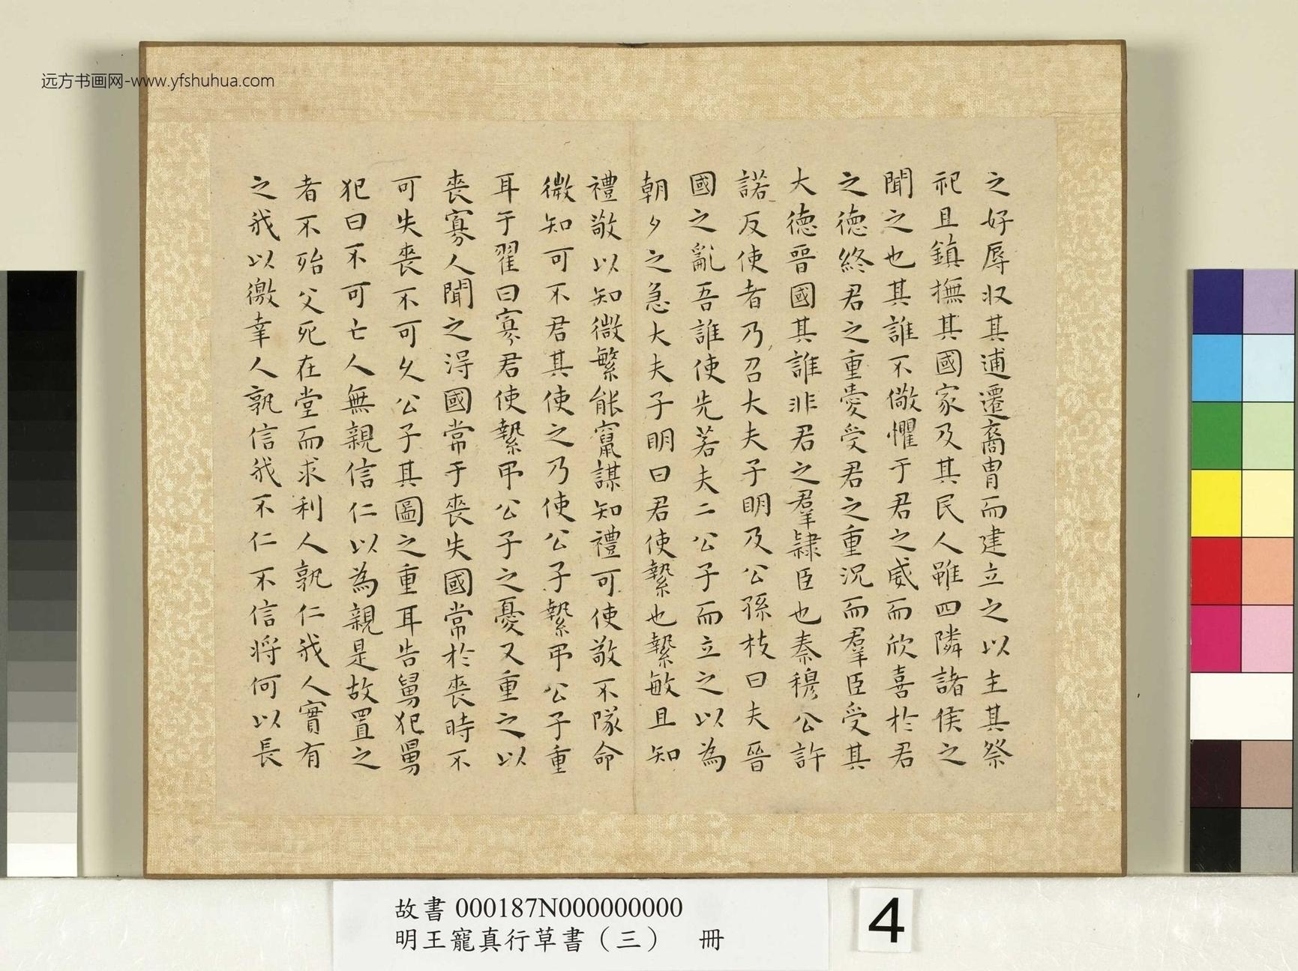 远方书画网-www.yfshuhua.com
之好辱収其逋遷裔胄而建立之以主其祭
祀且鎮撫其國家及其民人雖四隣諸侯之
聞之也其誰不儆懼于君之威而欣喜於君
之德終君之重愛受君之重況而羣臣受其
大德晉國其誰非君之羣隸臣也秦穆公許
諾反使者乃召大夫子明及公孫枝曰夫晉
國之亂吾誰使先若夫二公子而立之以為
朝夕之急大夫子明曰君使縶也縶敏且知
禮敬以知微繁能竄謀知禮可使敬不隊命
微知可不君其使之乃使公子縶弔公子重
耳于翟曰寡君使縶弔公子之憂又重之以
喪寡人聞之得國常于喪失國常於喪時不
可失喪不可久公子其圖之重耳告舅犯舅
犯曰不可亡人無親信仁以為親是故置之
者不殆父死在堂而求利人孰仁我人實有
之我以徼幸人孰信我不仁不信将何以長
故書 000187N000000000
明王寵真行草書（三） 冊
4